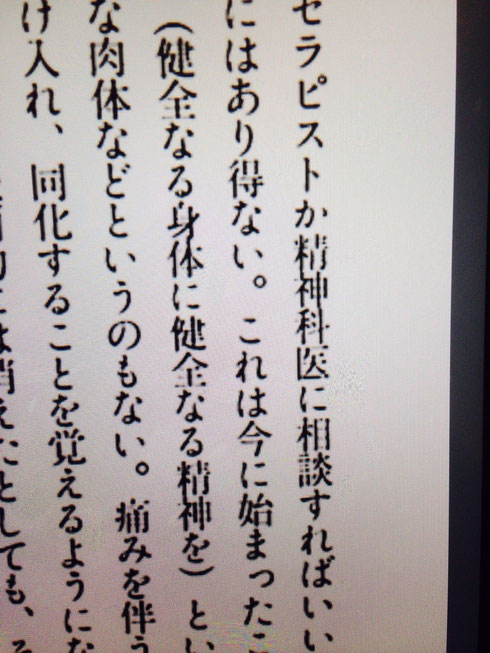 セラピストか精神科医に相談すればいい
にはあり得ない。これは今に始まったこ
(健全なる身体に健全なる精神を)とい
な肉体などというのもない。痛みを伴う
け入れ、同化することを覚えるようにな
は消えたとしても、